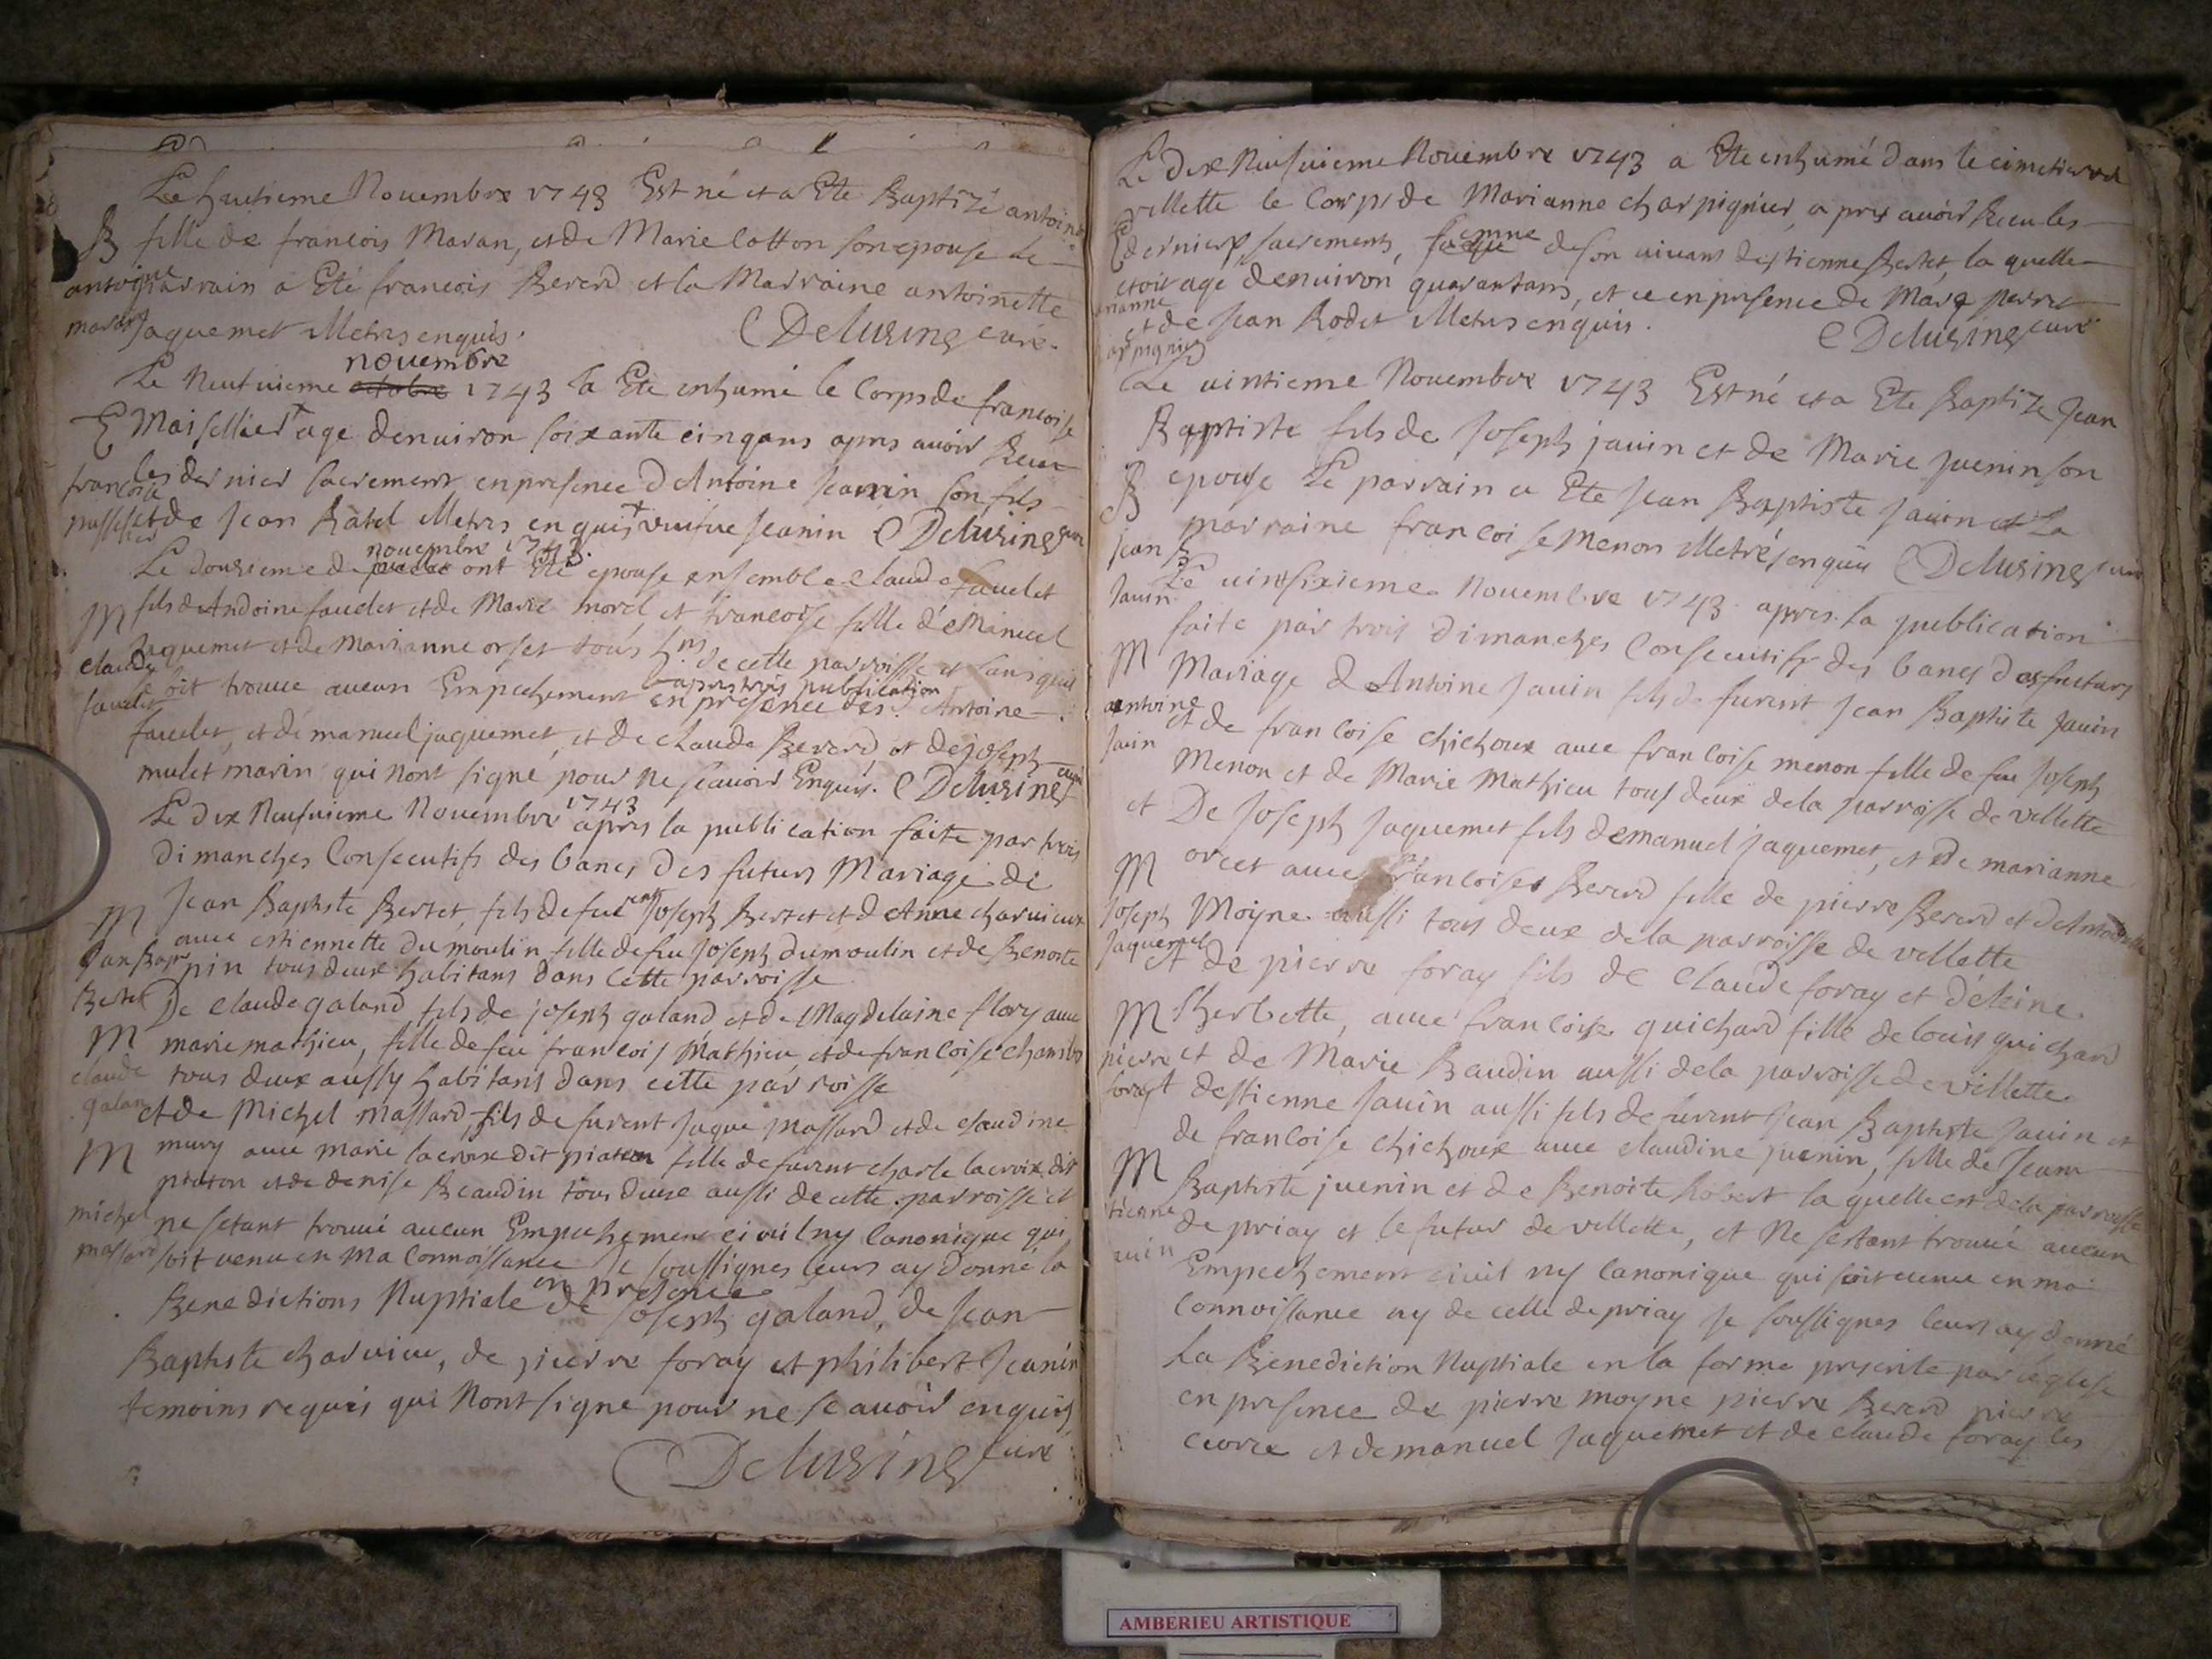 Le huitieme Novembre 1743 Est né et a Ete Baptizé antoine
B fille de francois Maran, et de Marie Cotton son epouse Le
antoine parrain a Eté francois Bererd et la Marraine antoinette
maran Jaquemet illetrés enquis. Delusing curé
novembre
Le Neufvieme octobre 1743 a Ete enhumé le Corps de francoise
E Maisellier + agé denviron soixante cinq ans apres avoir Receu
francoise les dernier sacrement en presence d'Antoine Jeanin son fils
et de Jean Ratel illetrés enquis + veufue Jeanin Delusing curé
novembre 1743
Le dousieme de ont Eté epouse ensemble claude faudet
M fils de Andoine faudet et de Marie morel et francoise fille d'eManuel
Jaquemet et de Marianne orset tous de cette parroisse et sans quil
claude
apres trois publication
soit trouve aucun Empechement en presence des Antoine
faudet, et de manuel jaquemet, et de claude Bererd, et de joseph
mulet marin qui nont signé pour ne scavoir Enquis. Delusing curé
1743
Le dix Neufvieme Novembre apres la publication faite par trois
Dimanches Consecutifs des bancs Des futurs Mariage de
M Jean Baptiste Bertet, fils de feu Joseph Bertet et d'Anne charvieux
Jean Bap avec estiennette dumoulin fille de feu Joseph dumoulin et de Benoite
pin tous deux habitans dans Cette parroisse
Bertet De claude galand fils de joseph galand et de Magdelaine flory avec
M marie mathieu, fille de feu francois Mathieu et de francoise
claude tous deux aussy habitans dans cette parroisse
galan et de Michel Massard, fils de furent Jaque Massard et de claudine
M mury avec marie lacroix dit piaton fille de furent charle lacroix dit
piaton et de denise Beaudin tous deux aussi de cette parroisse et
michel ne setant trouvé aucun Empechement civil ny Canonique qui
massard soit venu en Ma Connoissance Je soussignes leurs ay Donné la
en presence
Benedictions Nuptiale de Joseph galand, de Jean
Baptiste charvieu, de pierre foray et philibert Jeanin
temoins requis qui Nont signe pour ne scavoir enquis
Delusing curé
Le dix Neufvieme Novembre 1743 a Ete enhumé dans le cimetiere de
villette le Corps de Marianne charpignier, apres avoir Receu les
E derniers sacrements, femme de son vivant destienne Bertet, la quelle
etoit agé denviron quarantans, et ce en presence de Marq perret
et de Jean Rodet illetrés enquis. Delusing curé
Le vintieme Novembre 1743 Est né et a Ete Baptize Jean
Baptiste fils de Joseph jauin et de Marie juenin son
B epouse Le parrain a Ete Jean Baptiste Jauin et La
Jean B marraine francoise Menon illetrés enquis Delusing curé
Jauin Le vintsixieme Novembre 1743 apres la publication
faite par trois Dimanches Consecutifs des bancs des futurs
M Mariage d'Antoine Jauin fils de furent Jean Baptiste Jauin
antoine et de francoise chichoux avec francoise menon fille de feu Joseph
Jauin Menon et de Marie Mathieu tous deux de la parroisse de villette
et De Joseph Jaquemet fils demanuel jaquemet, et de marianne
M orcet avec francoise Bererd fille de pierre Bererd et
Joseph Moyne aussi tous deux de la parroisse de villette
Jaquemet et de pierre foray fils de Claude foray et
M avec francoise guichard fille de louis guichard
pierre et de Marie Beaudin aussi de la parroisse de villette
foray et destienne Jauin aussi fils de furent Jean Baptiste Jauin et
de francoise chichoux avec claudine juenin, fille de Jean
M Baptiste juenin et de Benoite Robert la quelle est de la parroisse
tienne de priay et le futur de villette, et Ne sestant trouvé aucun
Empechement civil ny Canonique qui soit venu en ma
Connoissance ny de celle de priay Je soussignes leurs ay donné
La Benediction Nuptiale en la forme prescrite par leglise
en presence de pierre moyne pierre Bererd pierre
et demanuel Jaquemet et de claude foray les
AMBERIEU ARTISTIQUE